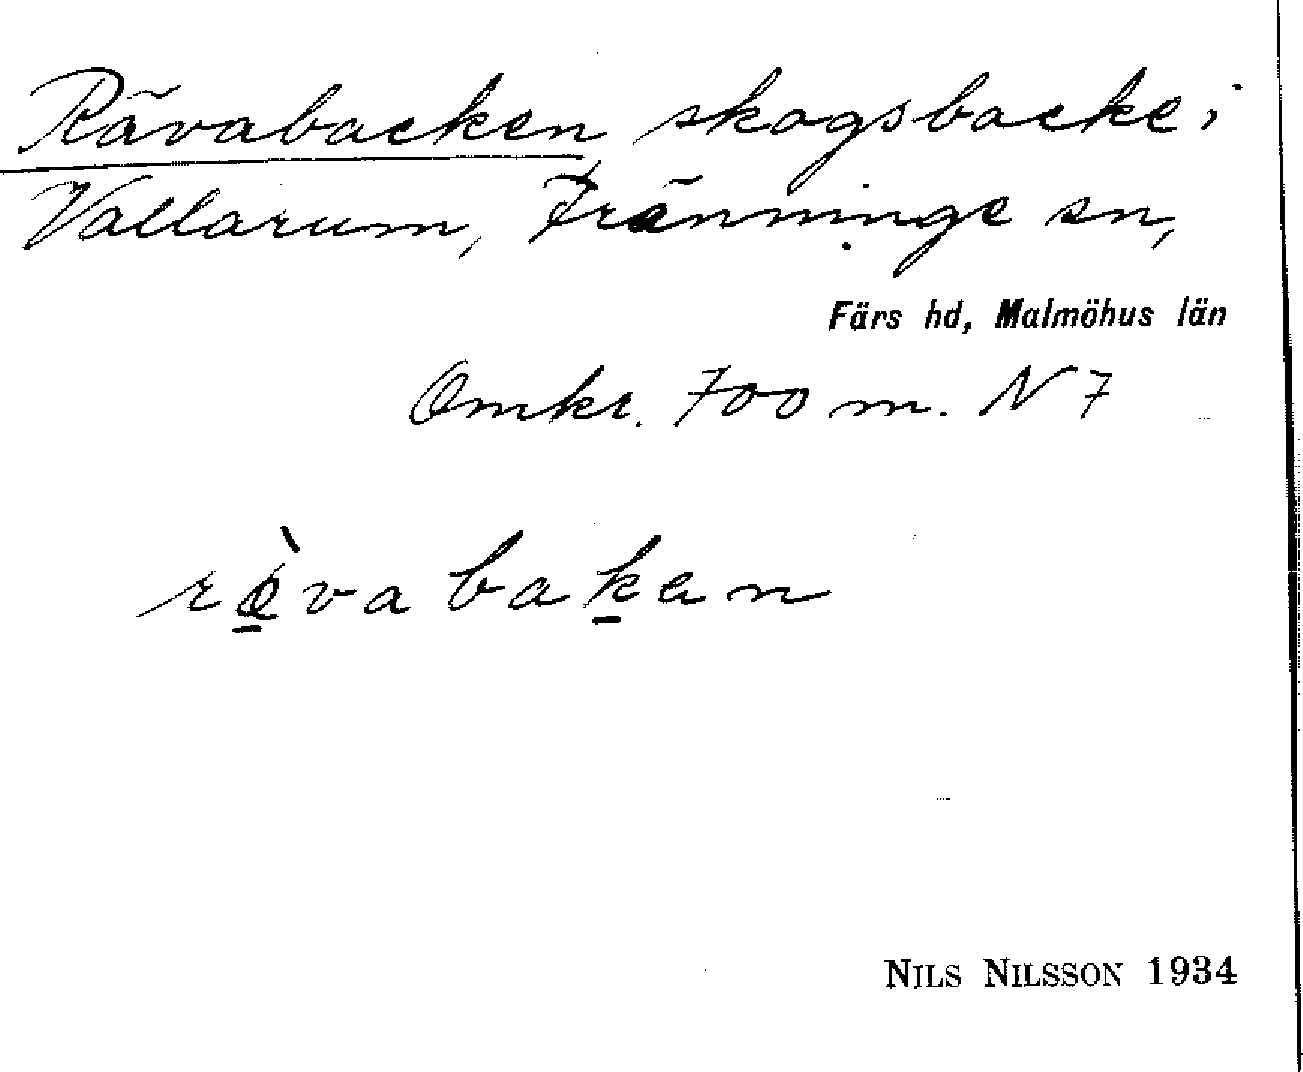 Rävabacken skogsbacke i
Vallarum, Fränninge sn,
Färs hd, Malmöhus län
Omkr. 700 m. N 7
rävabaken
NILS NILSSON 1934